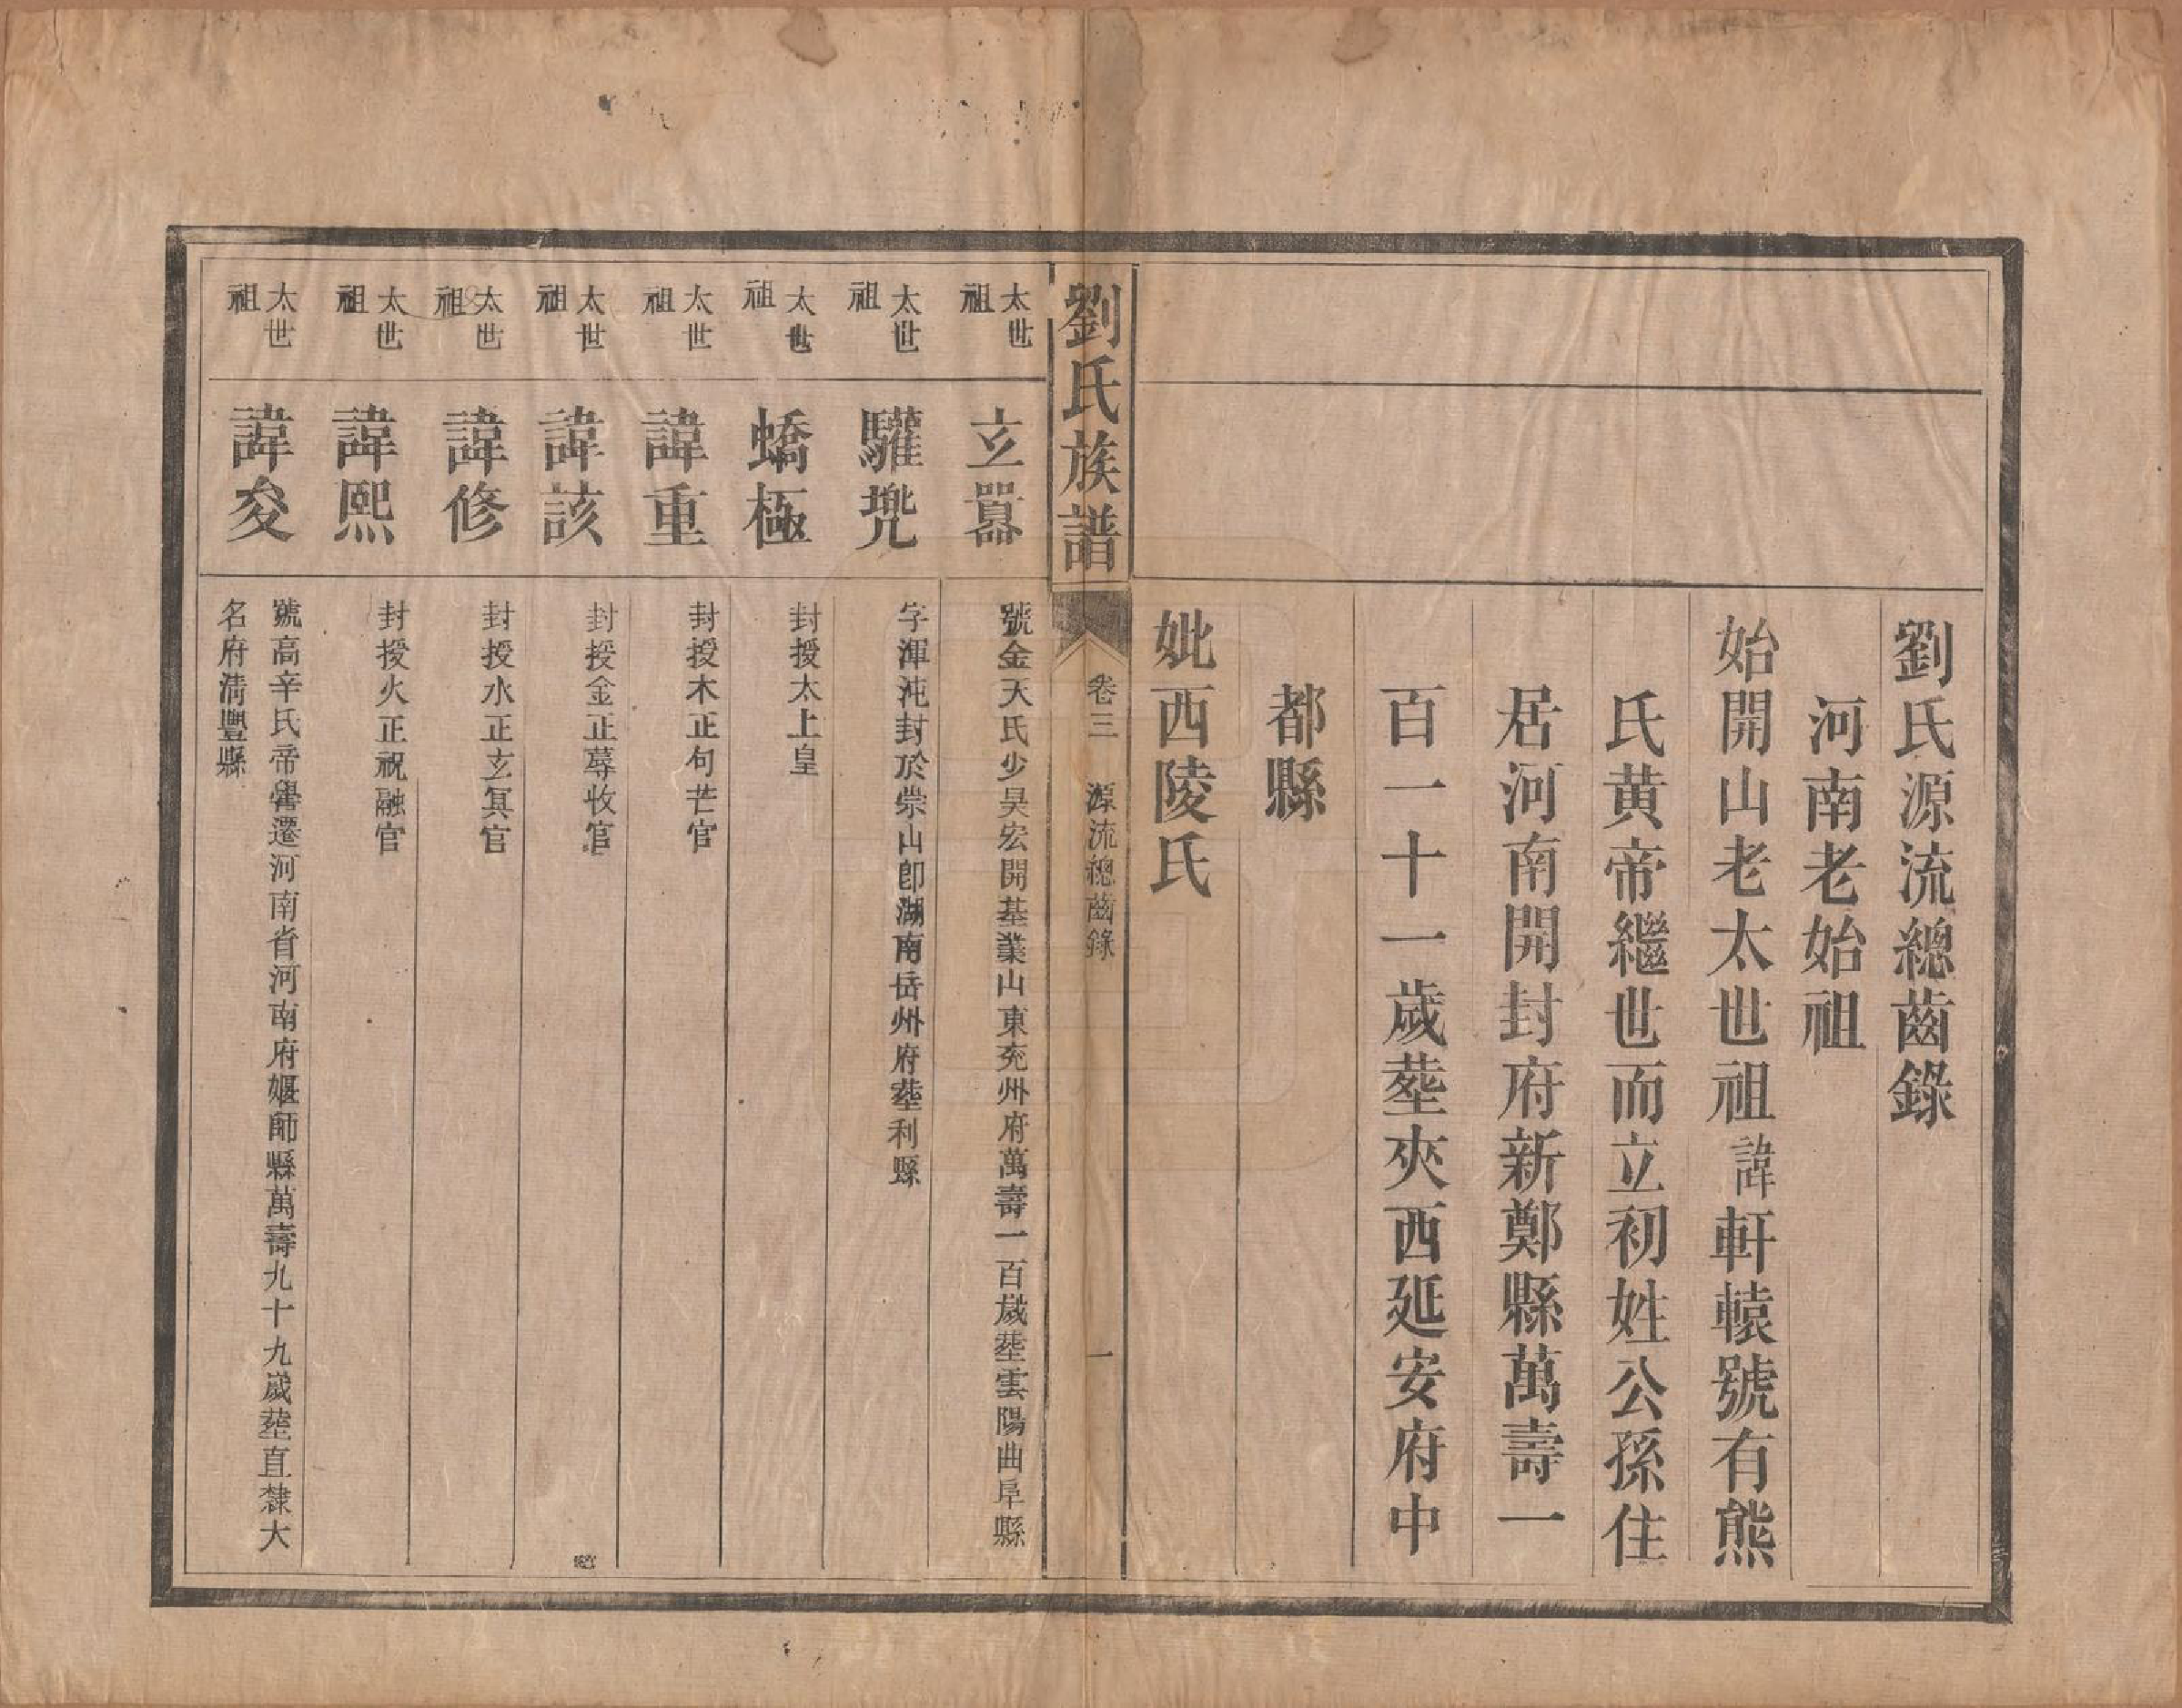 劉氏源流總齒錄
河南老始祖
始開山老太世祖諱軒轅號有熊
氏黄帝繼世而立初姓公孫住
居河南開封府新鄭縣萬壽一
百一十一歲塟夾西延安府中
都縣
妣西陵氏
劉氏族譜
卷三 源流總齒錄
一
太世祖 玄囂 號金天氏少昊宏開基業山東兖州府萬壽一百歲塟雲陽曲阜縣
太世祖 驩兠 字渾沌封於崇山卽湖南岳州府塟利縣
太世祖 蟜極 封授太上皇
太世祖 諱重 封授木正句芒官
太世祖 諱該 封授金正蓐收官
太世祖 諱修 封授水正玄冥官
太世祖 諱熙 封授火正祝融官
太世祖 諱夋 號高辛氏帝嚳遷河南省河南府偃師縣萬壽九十九歲塟直隸大
名府淸豐縣